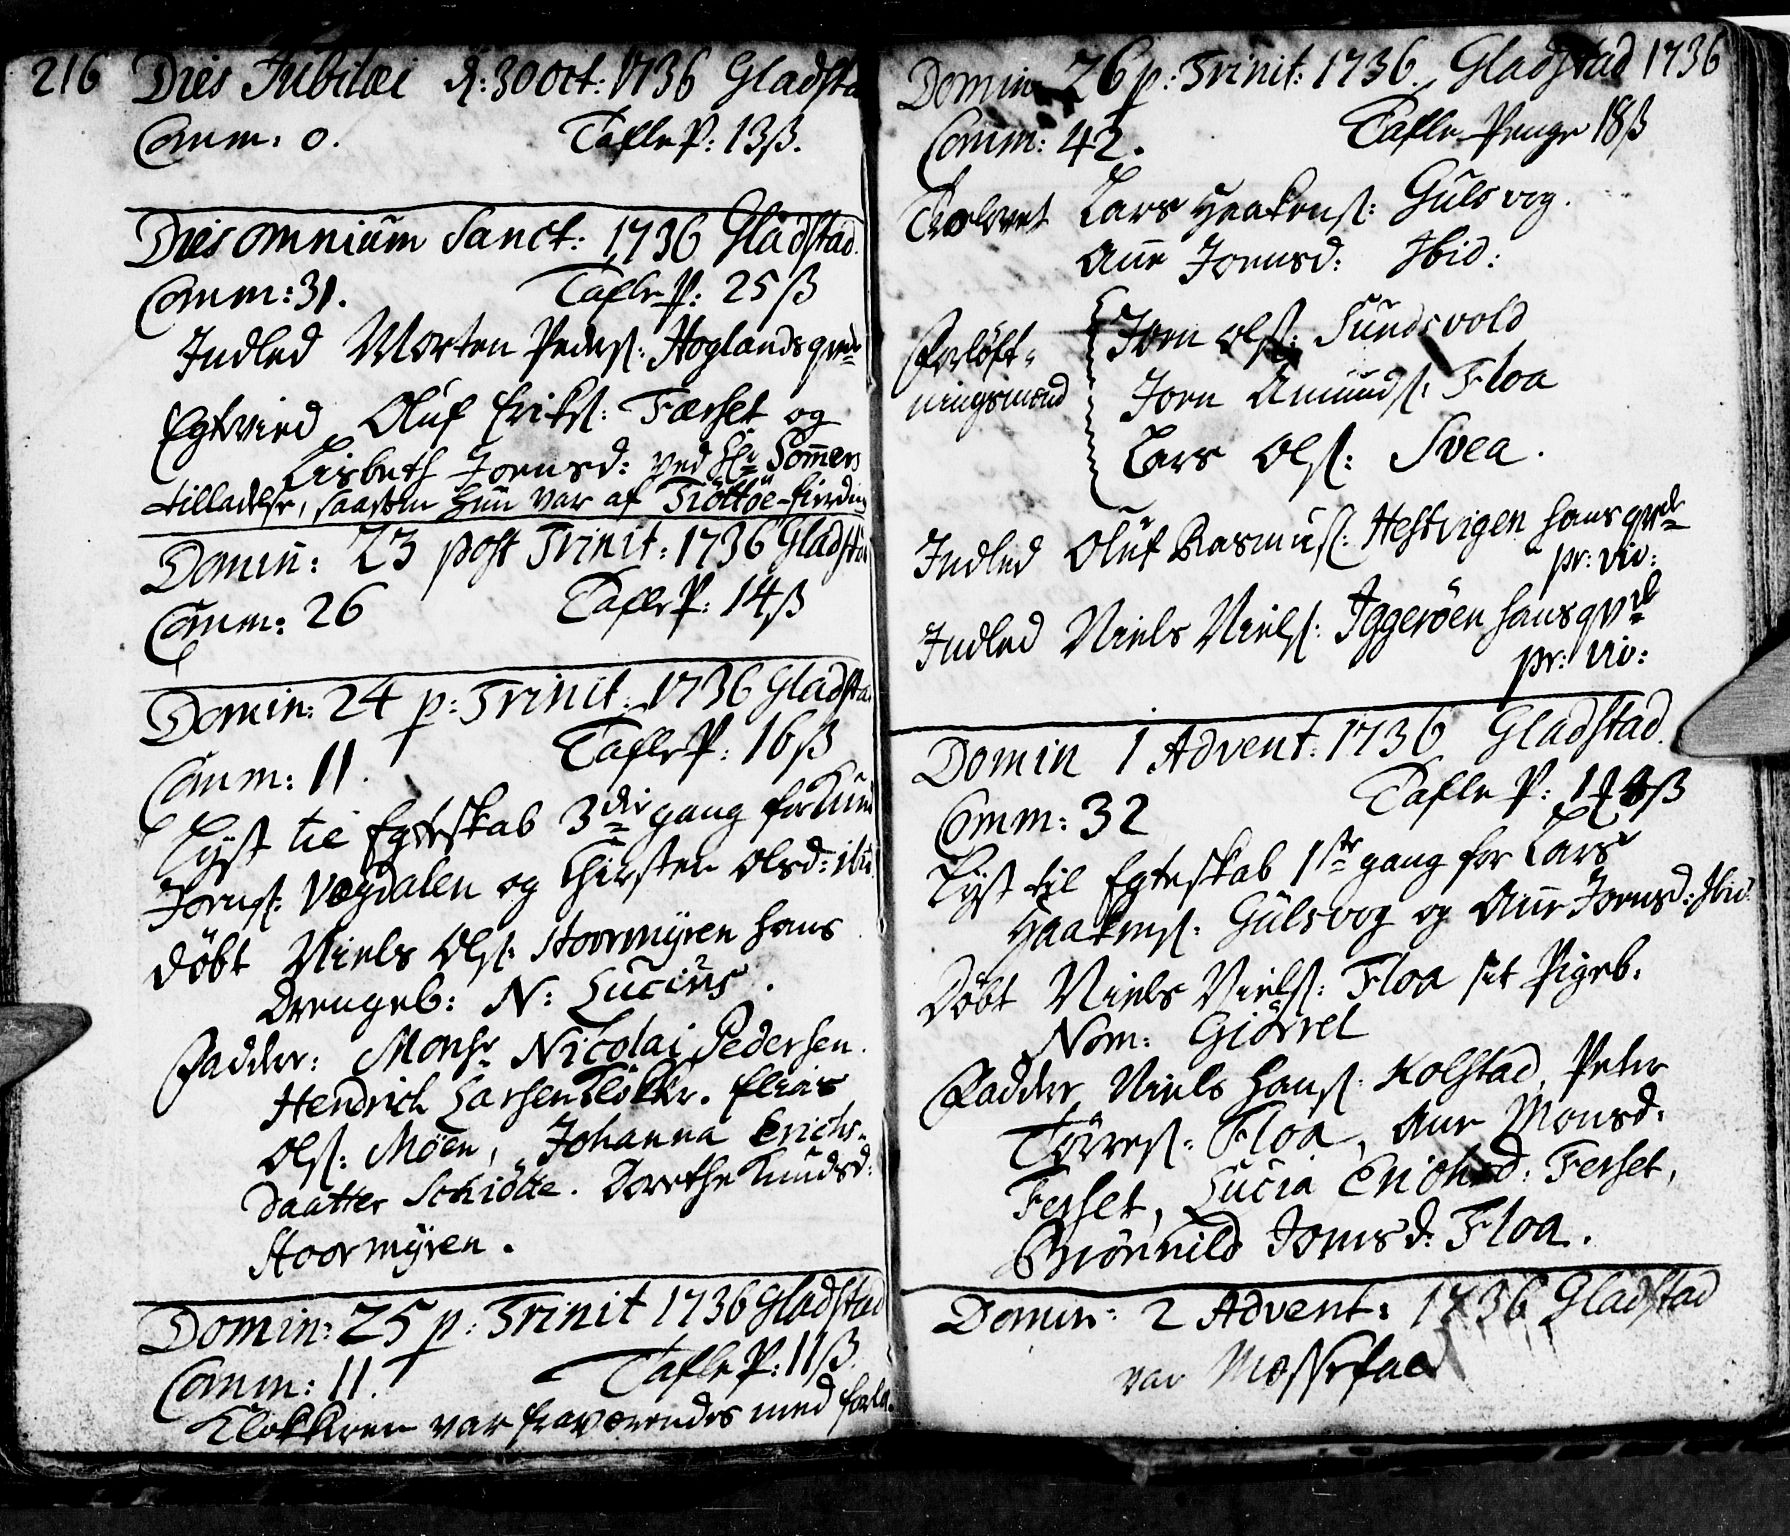 216 Dies Jubilæi d: 30 Oct: 1736 Gladsta
Comm: 0. Tafle P: 13ß.
Dies omnium Sanct: 1736 Gladstad.
Comm: 31. Tafle P: 25ß
Indled Morten Peders: Hoglands qvde
Egtevied Oluf Eriks: Færset og
Lisbeth Joensd: ved Hr Sommers
tilladelse, saasom hun var af Tiöttöe-fierding
Domin: 23 post Trinit: 1736 Gladsta
Comm: 26 Tafle P: 14ß
Domin: 24 p: Trinit: 1736 Gladsta
Comm: 11. Tafle P: 16ß
Lyst til Egteskab 3die gang for Knud
Joens: Vægdalen og Chirsten Olsd: ibid.
Döbt Niels Ols: Stoormÿren hans
Drengeb: N: Lucius.
Fadder: Monsr Nicolai Pedersen.
Hendrich Larsen Klokkr. Elias
Ols: Möen, Johanna Erichs-
daatter Schiötte. Dorethe Knudsd:
Stoormÿren.
Domin: 25 p: Trinit 1736 Gladstad
Comm: 11. Tafle P: 11ß.
Klokkeren var fraværendes med
Domin 26 p: Trinit: 1736. Gladstad 1736
Comm: 42. Tafle Penge 18ß
Trolovet Lars Haakens: Gulsvog.
Anne Joensd: Ibid:
Forlöft-
ningsmænd
Joen Ols: Sundsvold
Joen Amunds: Floa
Lars Ols: Svea.
Indled Oluf Rasmus: Hestvigen hans qvde
pr: vic:
Indled Niels Niels: Iggeröen hans qvde
pr: vic:
Domin 1 Advent: 1736 Gladstad.
Comm: 32 Tafle P: ß
Lyst til Egteskab 1ste gang for Lars
Haakens: Gulsvog og Anne Joensd: Ibid.
Döbt Niels Niels: Floa sit Pigeb.
Nom: Giörrel
Fadder Niels Hans: Kolstad, Peter
Törres: Floa, Ane Monsd:
Ferset, Lucia Erichsd: Ferset,
Brönnild Joensd: Floa.
Domin: 2 Advent: 1736 Gladstad
var Messefald